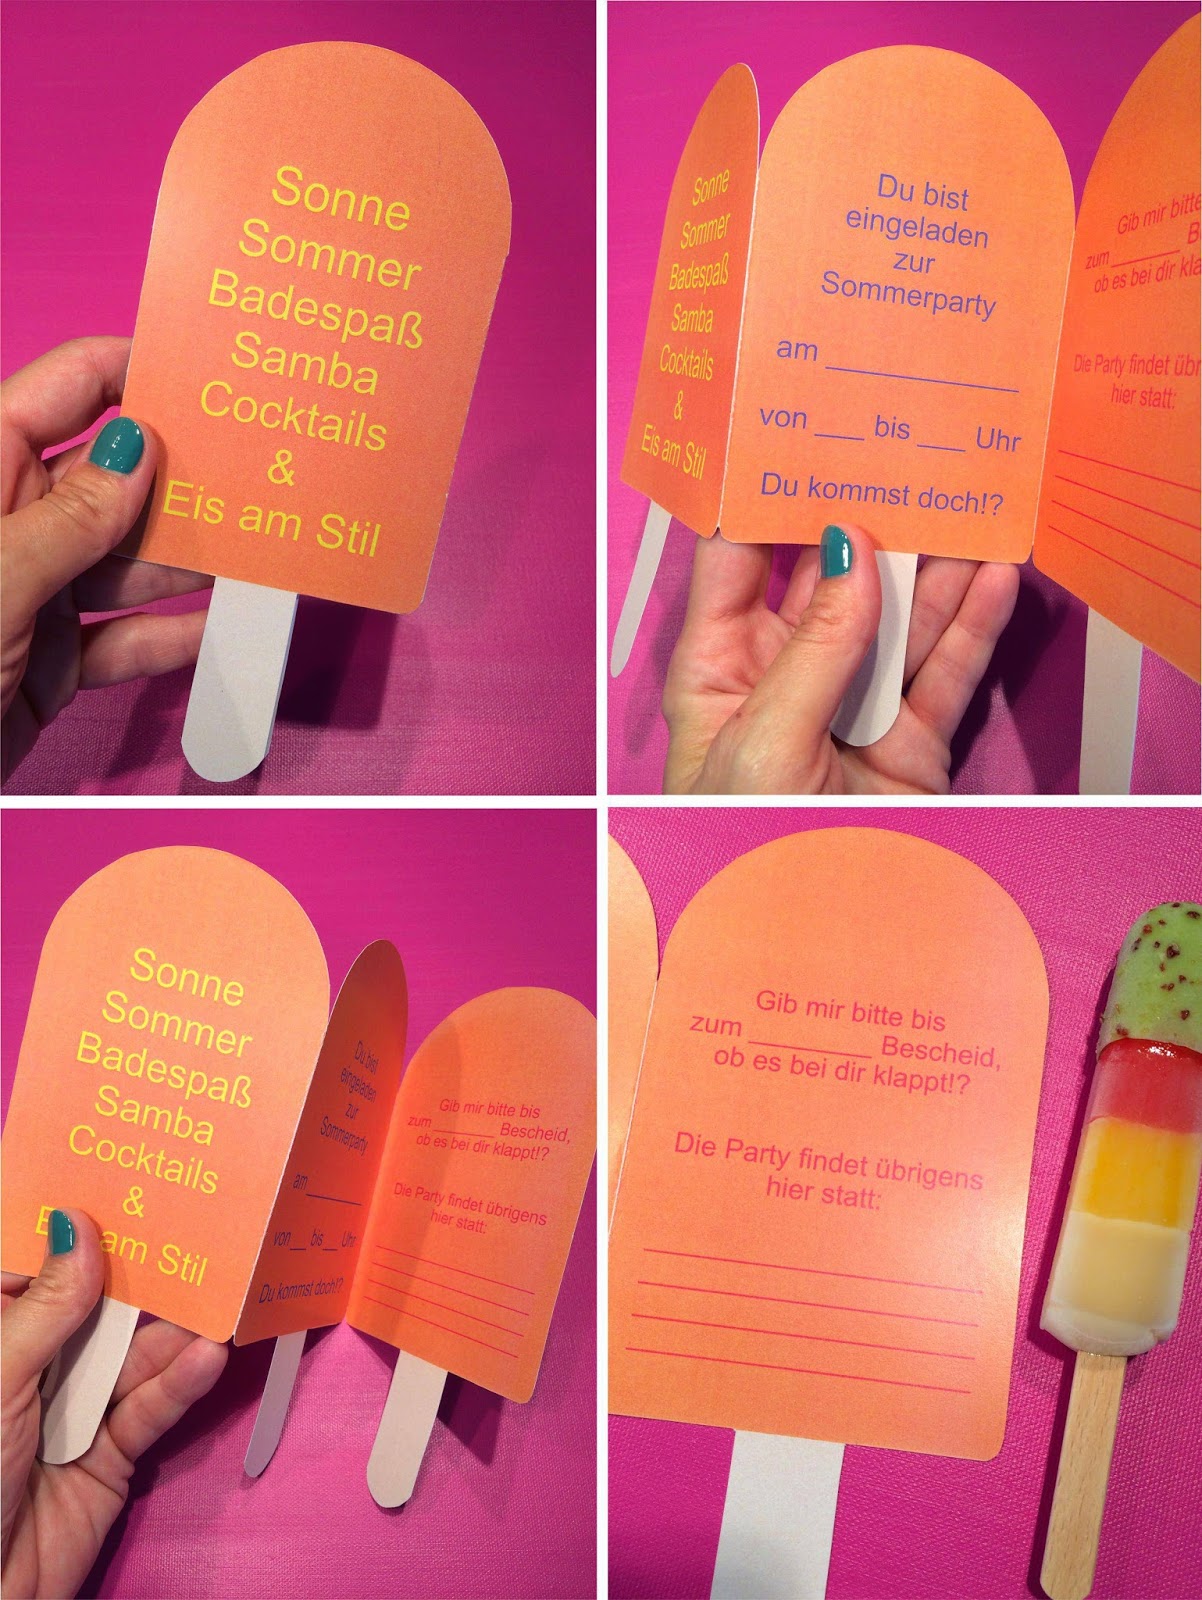 Sonne
Sommer
Badespaß
Samba
Cocktails
&
Eis am Stil
Sonne
Sommer
Badespaß
Samba
Cocktails
&
Eis am Stil
Du bist
eingeladen
zur
Sommerparty
am ____________
von ___ bis ___ Uhr
Du kommst doch!?
Gib mir bitte
zum ________ B
ob es bei dir kla
Die Party findet übr
hier statt:
Sonne
Sommer
Badespaß
Samba
Cocktails
&
E am Stil
Du bist
eingeladen
zur
Sommerparty
am ________
von __ bis __ Uhr
Du kommst doch!?
Gib mir bitte bis
zum ________ Bescheid,
ob es bei dir klappt!?
Die Party findet übrigens
hier statt:
Gib mir bitte bis
zum ________ Bescheid,
ob es bei dir klappt!?
Die Party findet übrigens
hier statt: